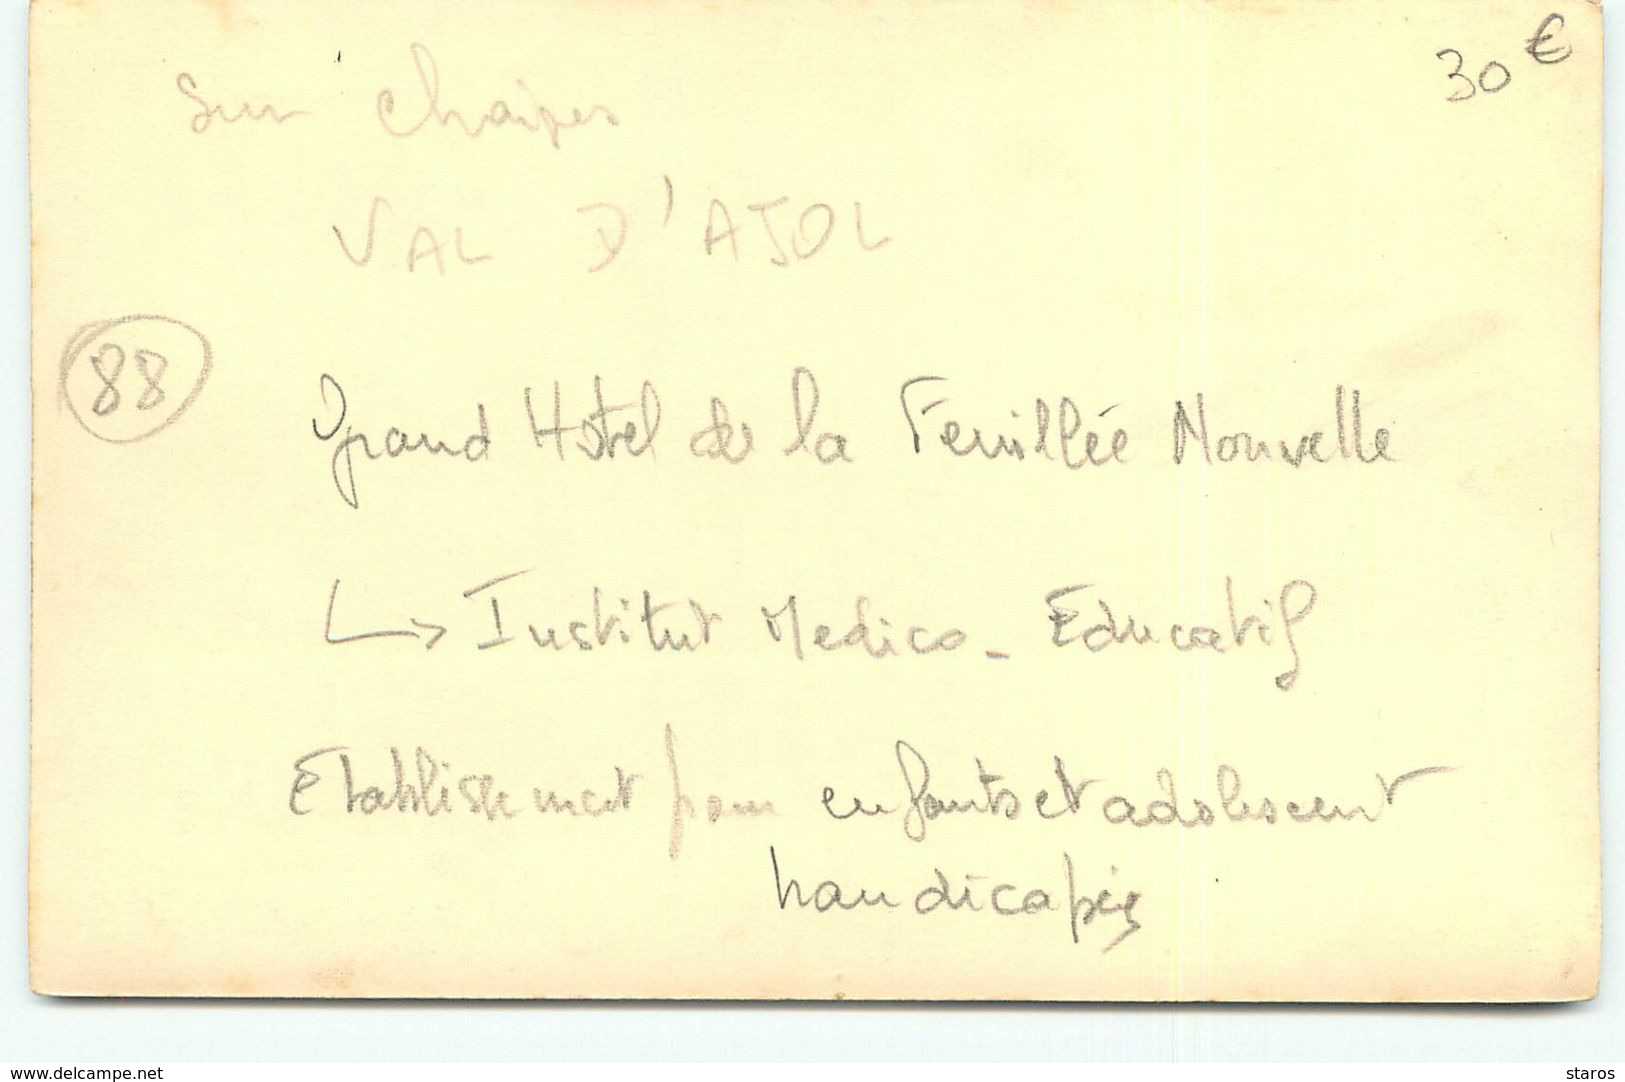 30 €
sur chaises
VAL D'AJOL
88
Grand Hotel de la Feuillée Nouvelle
Institut Medico - Educatif
Etablissement pour enfants et adolescent
handicapés
www.delcampe.net
staros